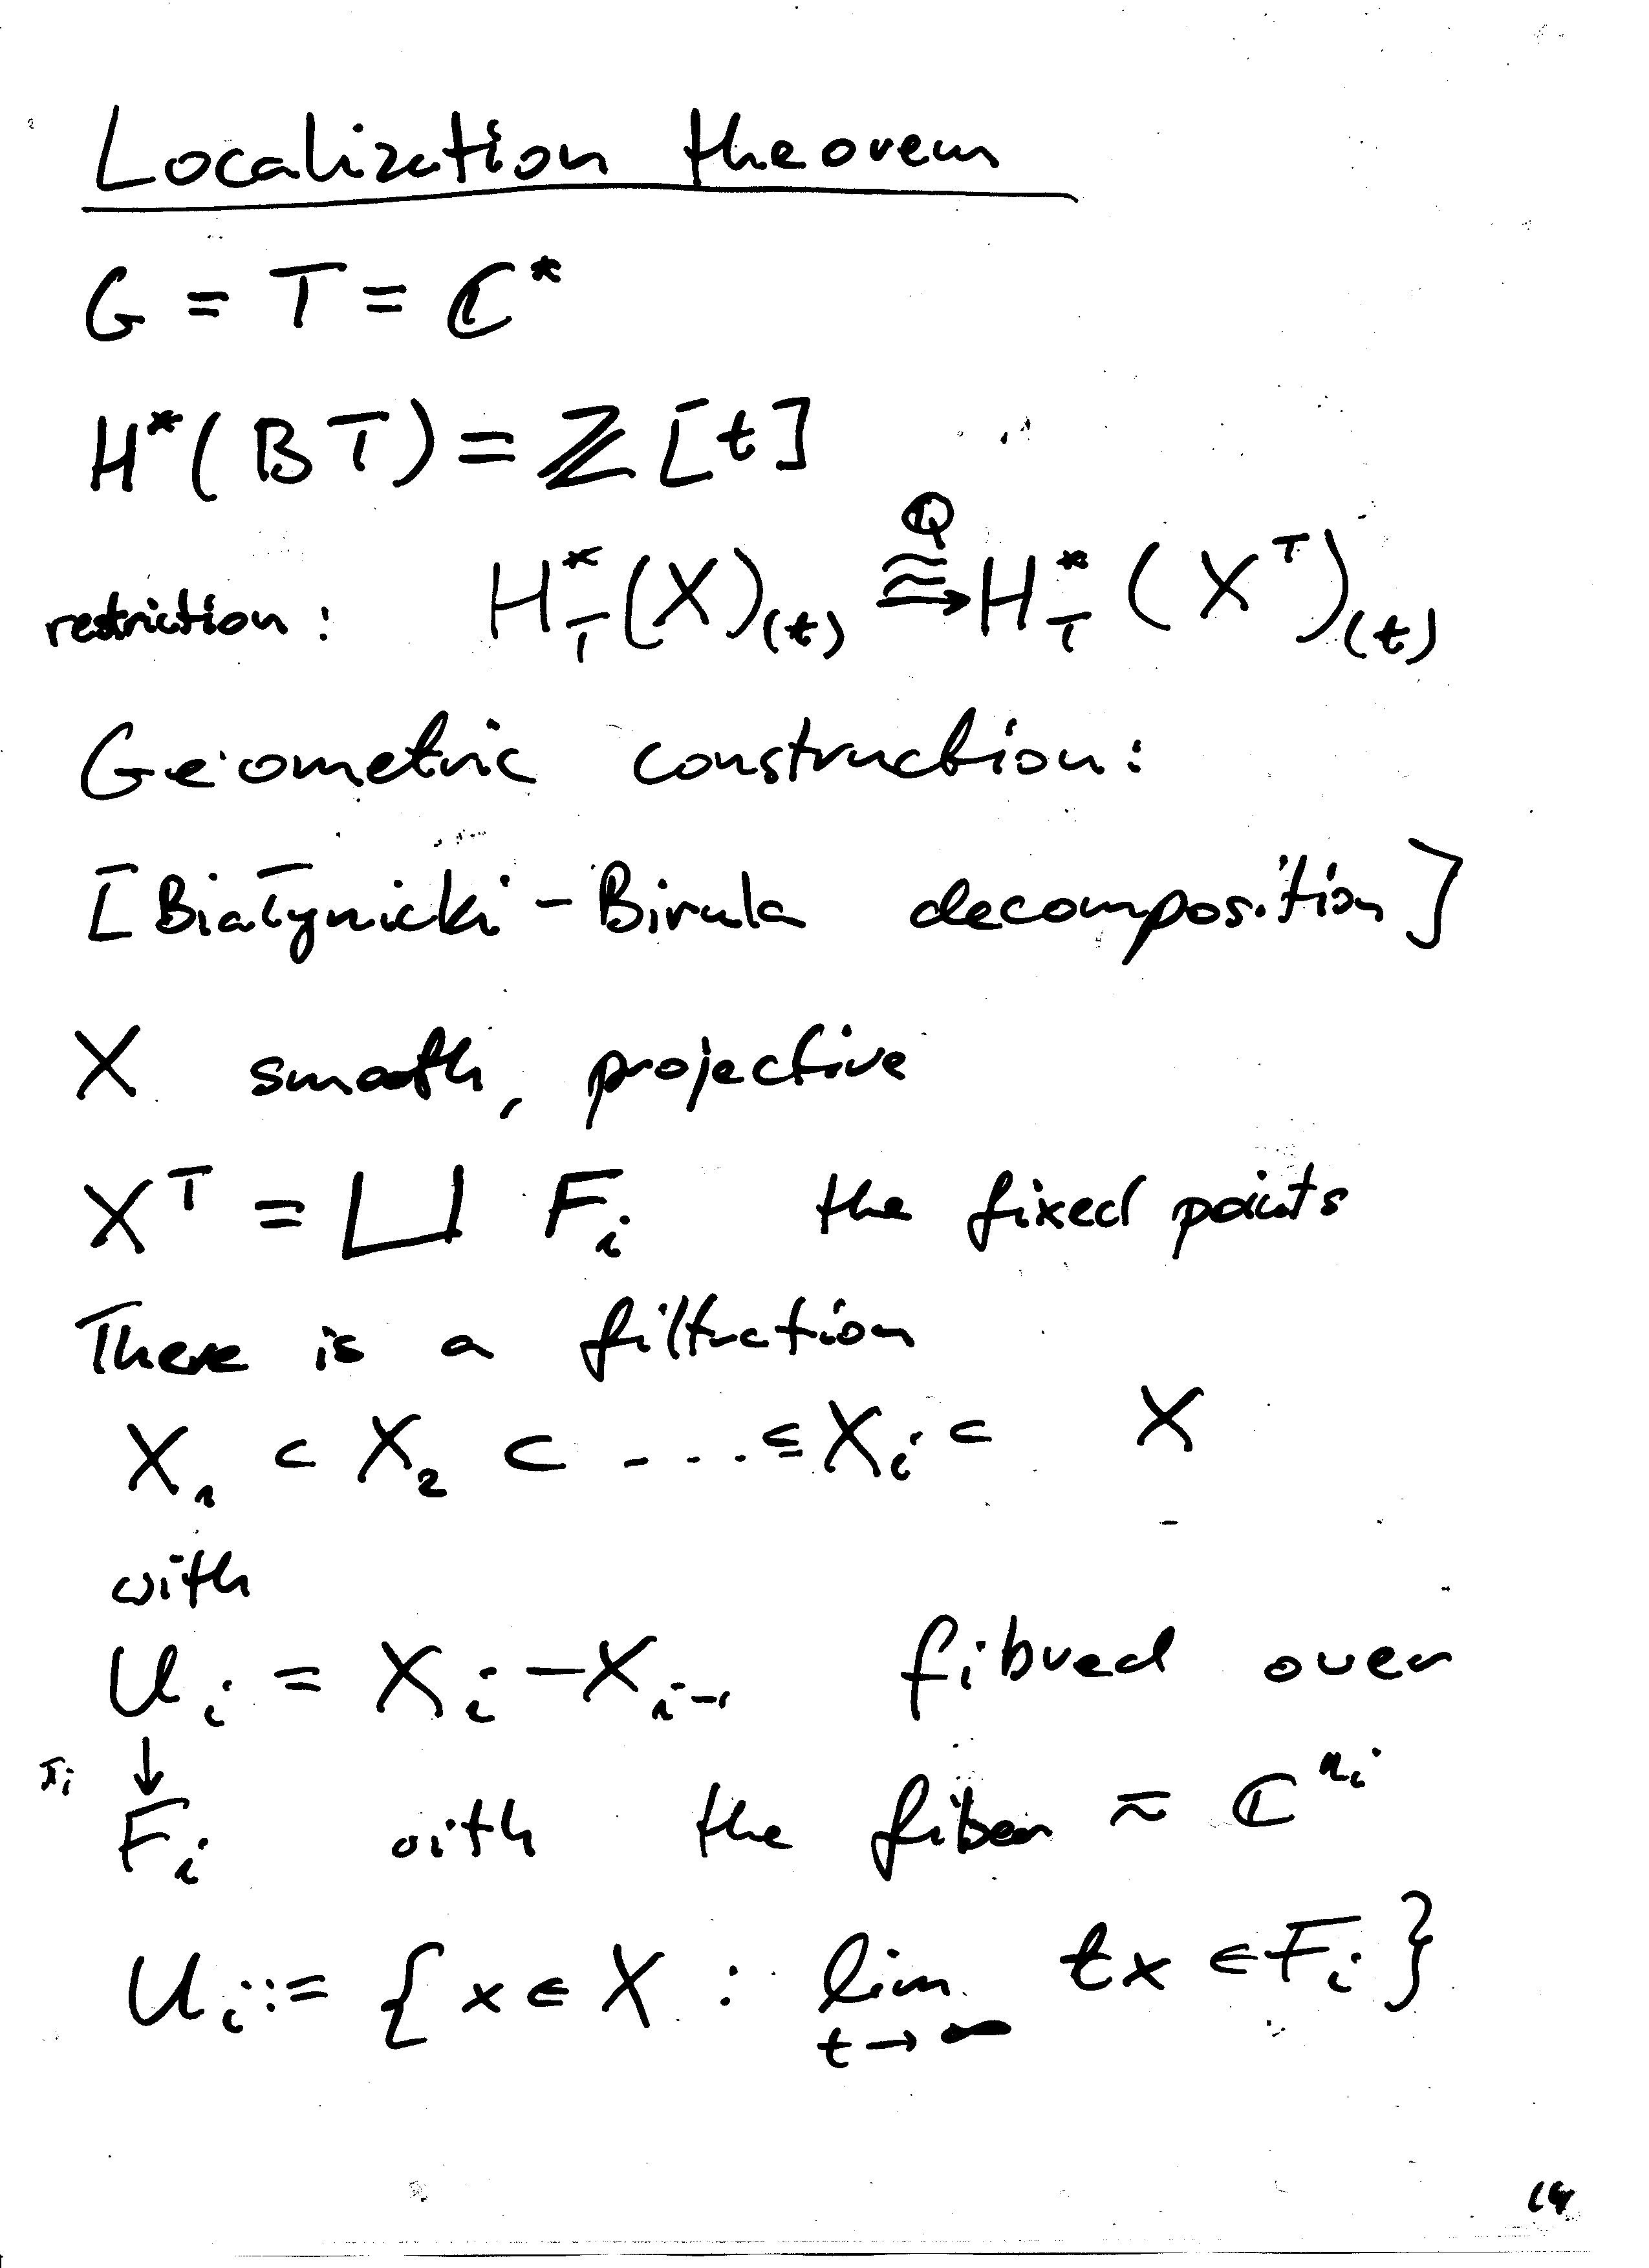 Localization theorem
G = T = ℂ*
H*(BT) = ℤ[t]
restriction: H*_T(X)_(t) ≅→^ℚ H*_T(X^T)_(t)
Geometric construction:
[Białynicki-Birula decomposition]
X smooth, projective
X^T = ⊔ F_i the fixed points
There is a filtration
X_1 ⊂ X_2 ⊂ .... ⊂ X_i ⊂ X
with
U_i = X_i - X_{i-1} fibred over
π_i ↓
F_i with the fiber ≈ ℂ^{n_i}
U_i := { x ∈ X : lim_{t→∞} tx ∈ F_i }